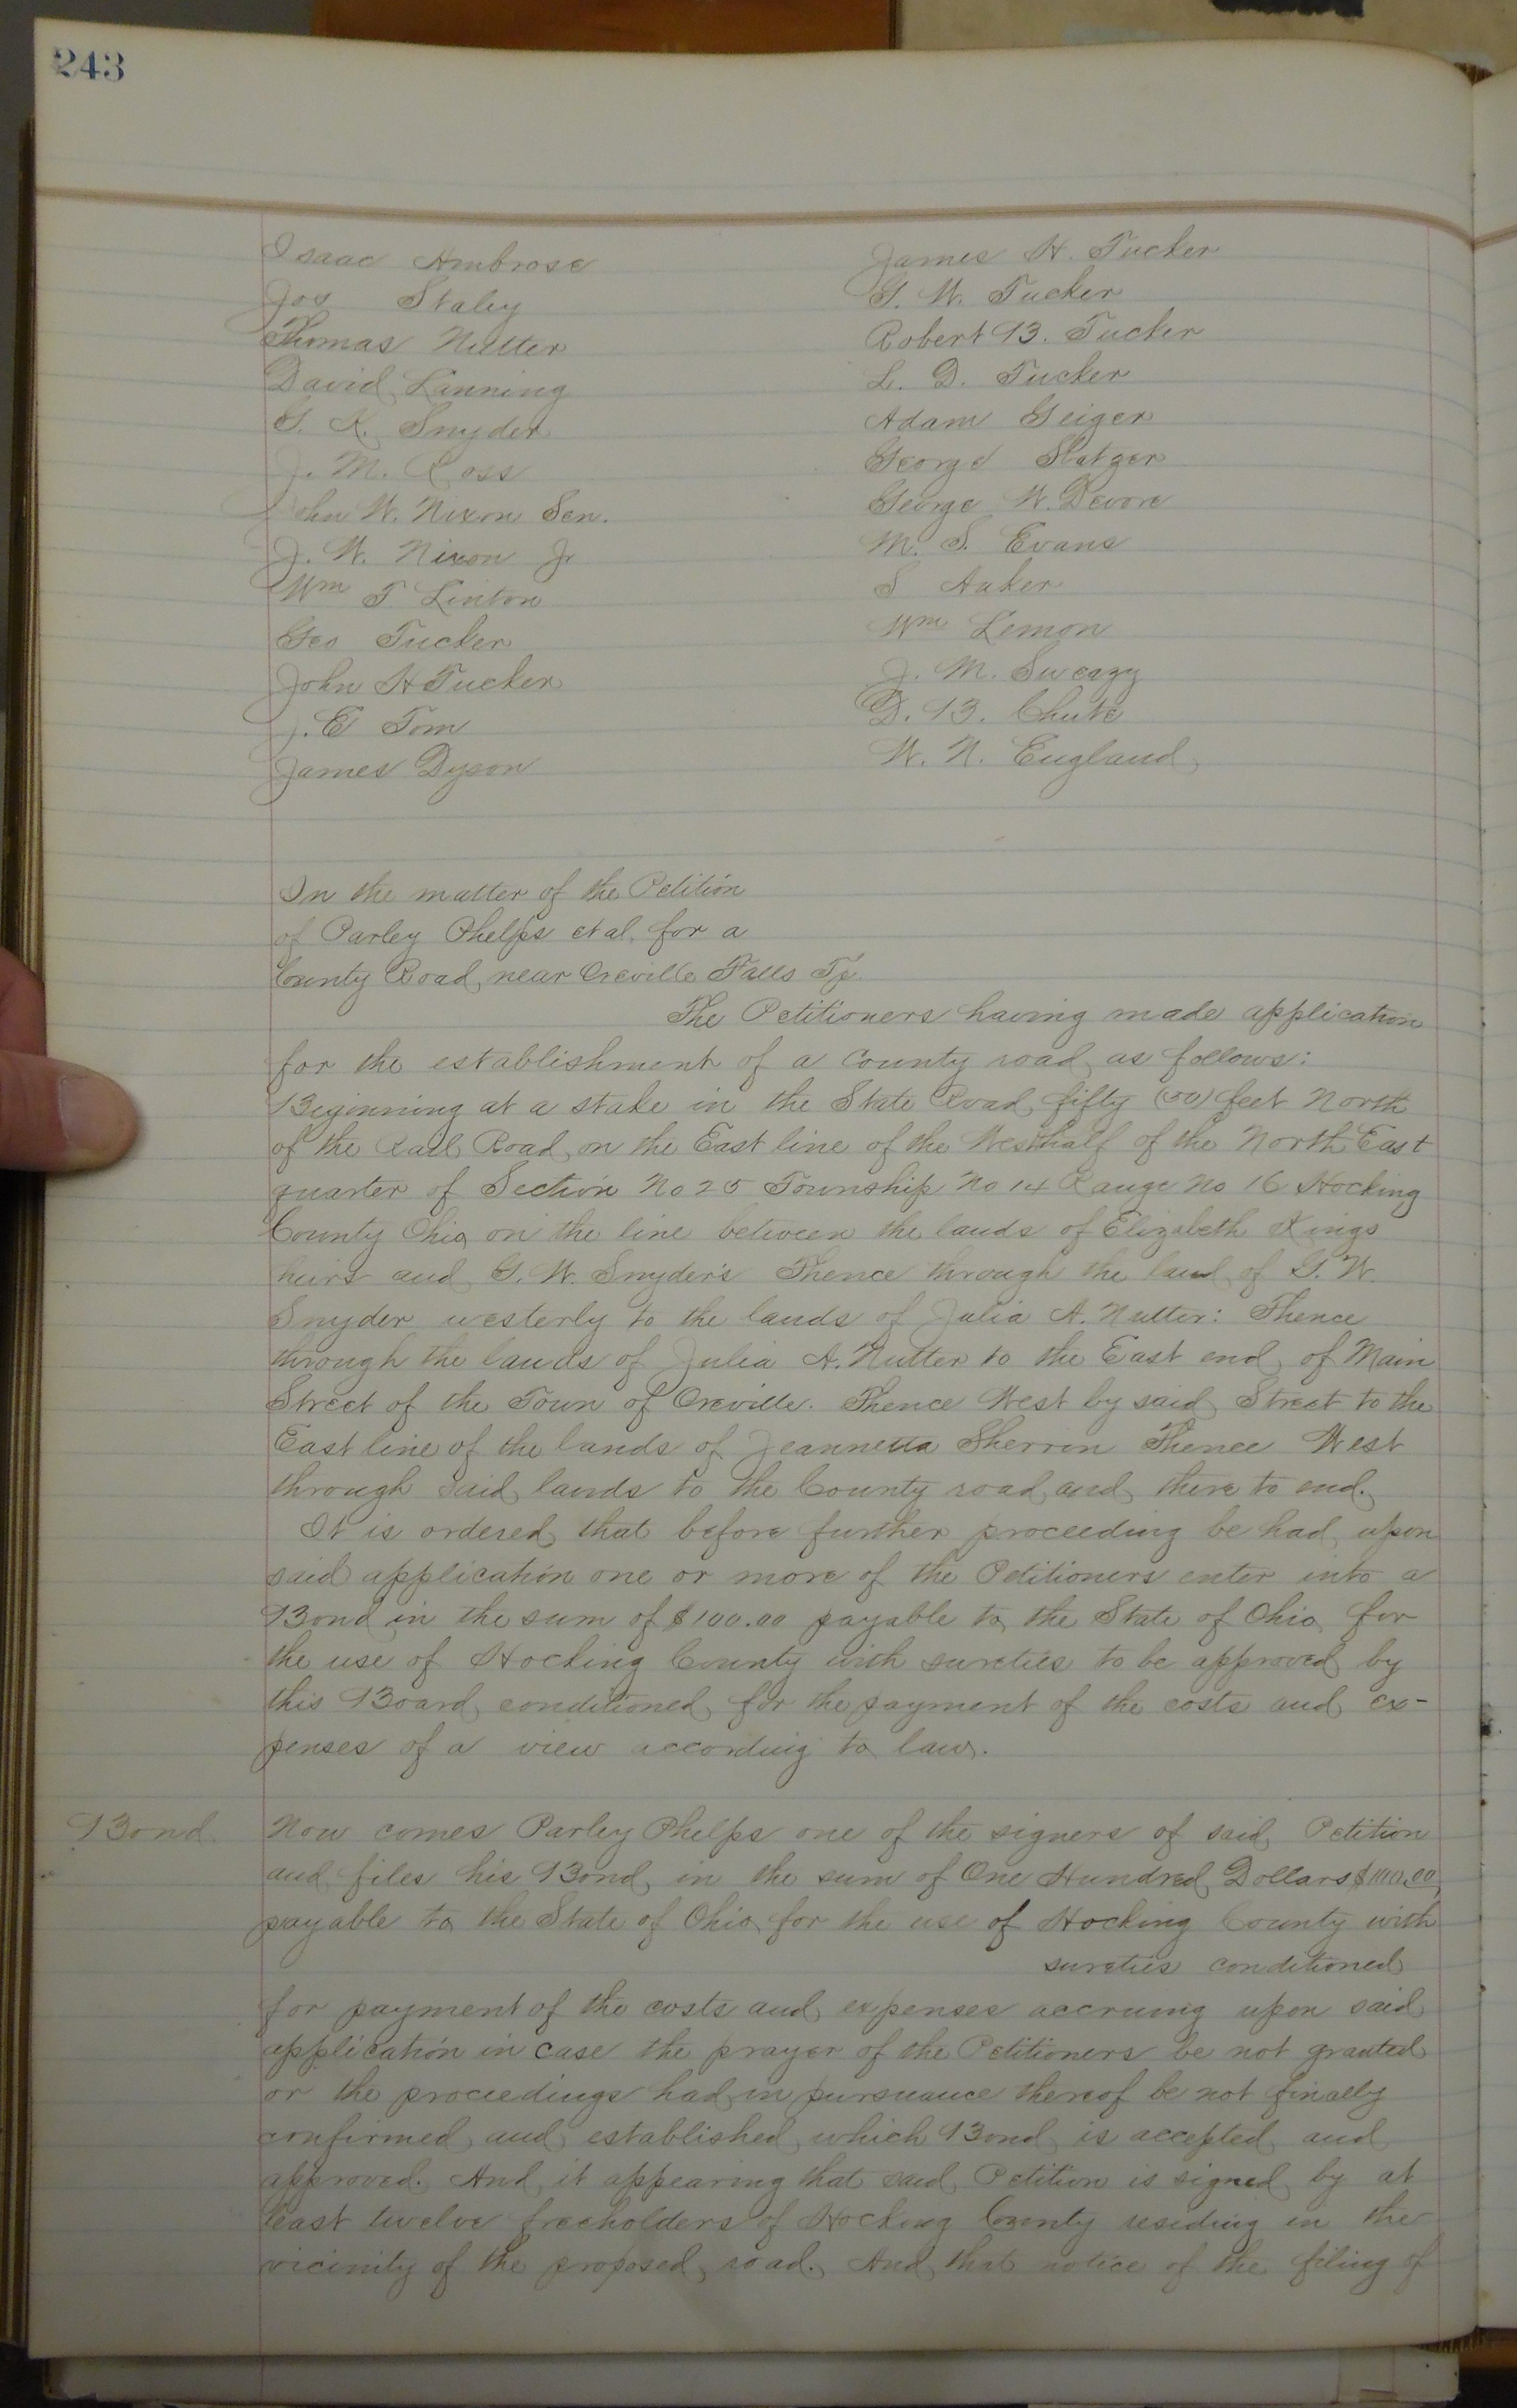 243
Isaac Ambrose
Jos Staley
Thomas Nutter
David Lanning
G. K. Snyder
J. M. Ross
John W. Nixon Sen.
J. W. Nixon Jr
Wm T Linton
Geo Tucker
John H Tucker
J. E Tom
James Dyson
James H. Tucker
G. W. Tucker
Robert B. Tucker
L. D. Tucker
Adam Geiger
George
George W. Devore
M. S. Evans
S Auker
Wm Lemon
J. M. Sweazy
D. B. Chute
W. N. England
In the matter of the Petition
of Parley Phelps et al. for a
County Road near Oreville Falls Tp.
The Petitioners having made application
for the establishment of a County road as follows:
Beginning at a stake in the State Road fifty (50) feet North
of the Rail Road on the East line of the West half of the North East
quarter of Section No 25 Township No 14 Range No 16 Hocking
County Ohio on the line between the lands of Elizabeth Kings
heirs and G. W. Snyder's Thence through the land of G. W.
Snyder westerly to the lands of Julia A. Nutter: Thence
through the lands of Julia A. Nutter to the East end of Main
Street of the Town of Oreville. Thence West by said Street to the
East line of the lands of Jeannetta Sherron Thence West
through said lands to the County road and there to end.
It is ordered that before further proceeding be had upon
said application one or more of the Petitioners enter into a
Bond in the sum of $100.00 payable to the State of Ohio for
the use of Hocking County with sureties to be approved by
this Board conditioned for the payment of the costs and ex-
penses of a view according to law.
Bond. Now comes Parley Phelps one of the signers of said Petition
and files his Bond in the sum of One Hundred Dollars $100.00
payable to the State of Ohio for the use of Hocking County with
sureties conditioned
for payment of the costs and expenses accruing upon said
application in case the prayer of the Petitioners be not granted
or the proceedings had in pursuance thereof be not finally
confirmed and established which Bond is accepted and
approved. And it appearing that said Petition is signed by at
least twelve freeholders of Hocking County residing in the
vicinity of the proposed road. And that notice of the filing of